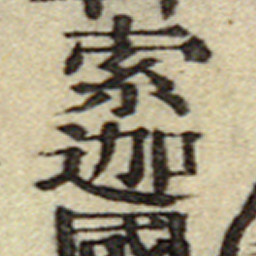 索迦國